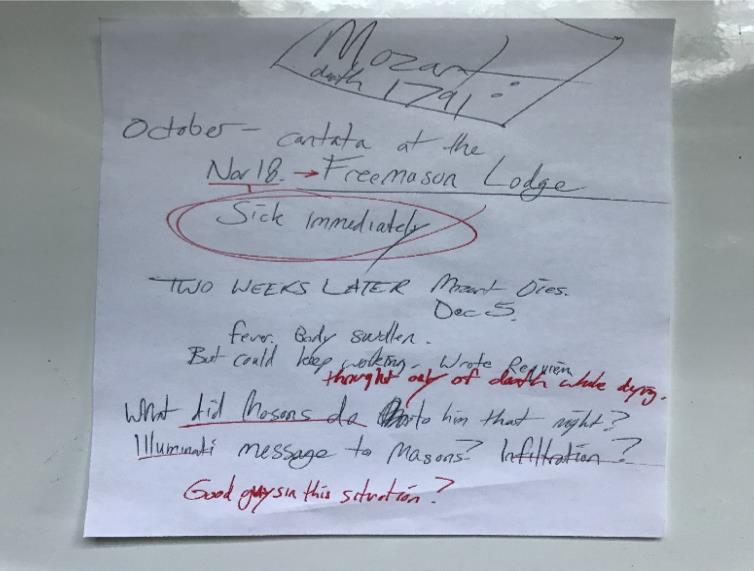 Mozart
death 1791
October - cantata at the
Nov 18. → Freemason Lodge
Sick immediately
TWO WEEKS LATER Mozart Dies.
Dec 5.
fever. Body swollen.
But could keep working. Wrote Requiem
thought only of death while dying.
What did Masons do to him that night?
Illuminati message to Masons? Infiltration?
Good guys in this situation?